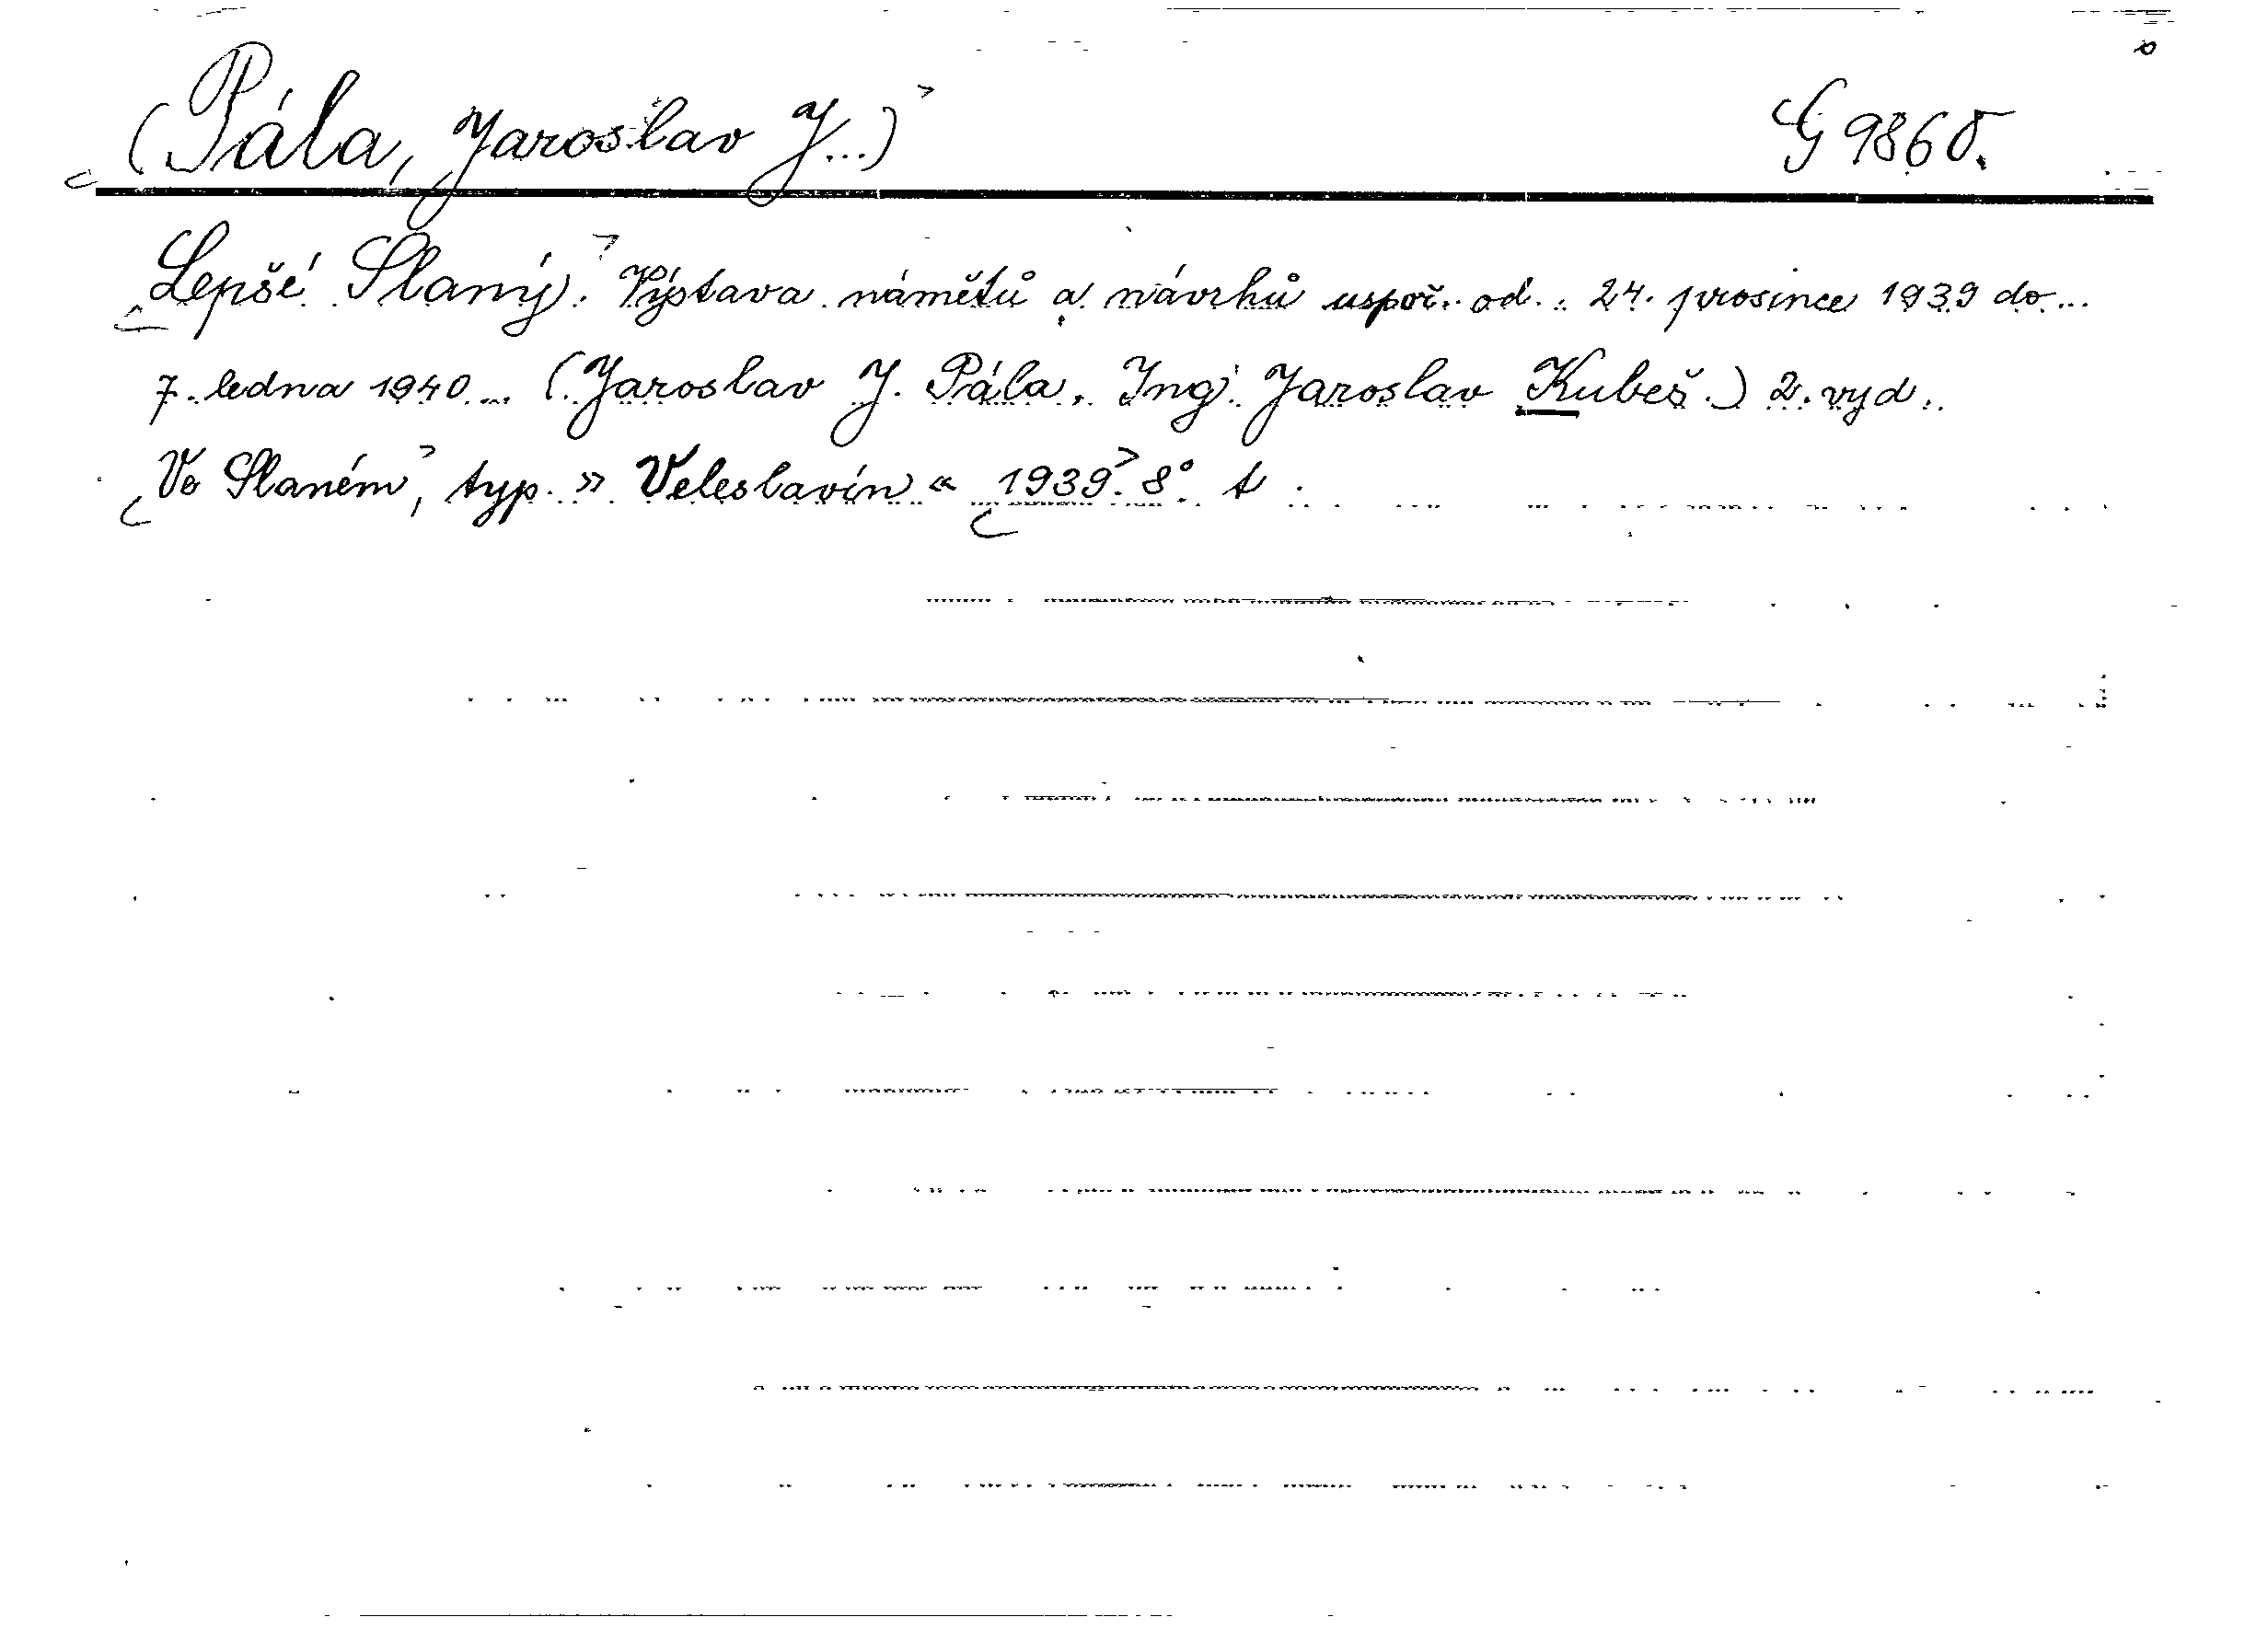 (Pála, Jaroslav J...) G 9865.
Lepšé Slaný. Výstava námětů a návrhů uspoř. od.. 24. prosince 1939 do...
7. ledna 1940... (Jaroslav J. Pála, Ing. Jaroslav Kubeš.) 2. vyd.
Ve Slaném, typ. » Veleslavín « 1939. 8° t